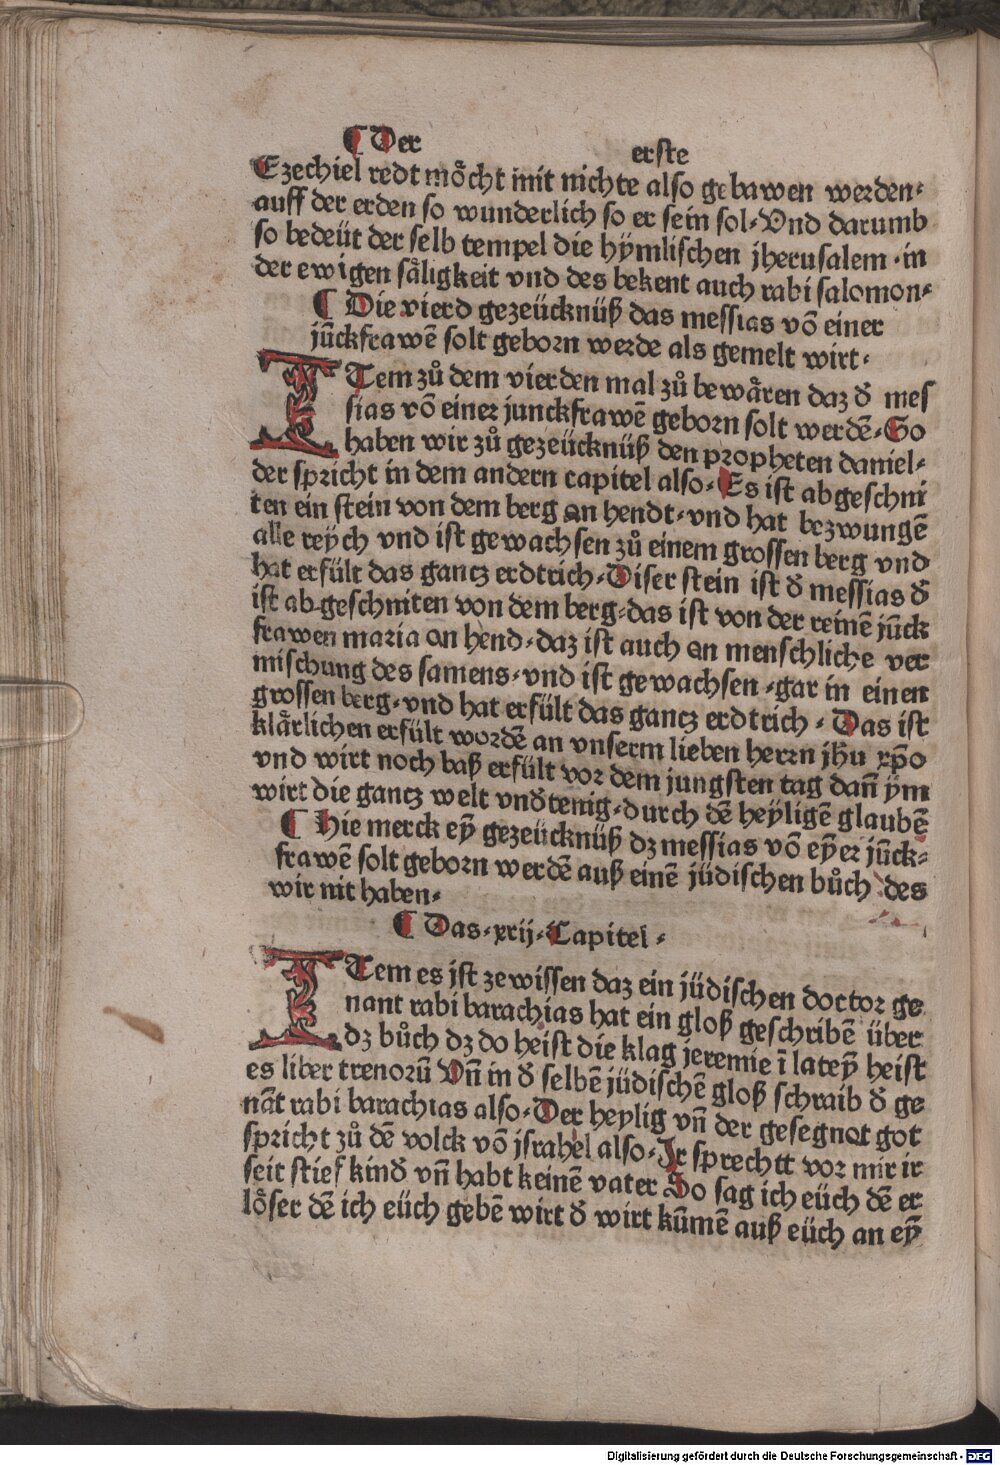 ¶ Der erste
Ezechiel redt moͤcht mit nichte also gebawen werden·
auff der erden so wunderlich so er sein sol· Vnd darumb
so bedeüt der selb tempel die hÿmlischen jherusalem · in
der ewigen saͤligkeit vnd des bekent auch rabi salomon·
¶ Die vierd gezeücknüß das messias vō einer
jūckfrawē solt geborn werde als gemelt wirt·
ITem zuͦ dem vierden mal zuͦ bewaͤren daz đ mes
sias vō einer junckfrawē geborn solt werdē· So
haben wir zuͦ gezeücknüß den propheten daniel·
der spricht in dem andern capitel also· Es ist abgeschni
ten ein stein von dem berg on hendt· vnd hat bezwungē
alle reÿch vnd ist gewachsen zuͦ einem grossen berg vnd
hat erfült das gantz erdtrich· Diser stein ist đ messias đ
ist ab geschniten von dem berg· das ist von der reinē jūck
frawen maria on hend· daz ist auch on menschliche ver
mischung des samens· vnd ist gewachsen · gar in einen
grossen berg· vnd hat erfült das gantz erdtrich · Das ist
klaͤrlichen erfült wordē an vnserm lieben herrn jhū xp̄o
vnd wirt noch baß erfült vor dem jungsten tag dañ ÿm
wirt die gantz welt vnđtenig· durch dē heÿligē glaubē
¶ Hie merck eȳ gezeücknüß dz messias vō eȳer jūck·
frawē solt geborn werdē auß einē jüdischen buͦch des
wir nit haben·
¶ Das· xxij· Capitel ·
ITem es jst ze wissen daz ein jüdischen doctor ge
nant rabi barachias hat ein gloß geschribē über
dz buͦch dz do heist die klag jeremie ī lateȳ heist
es liber trenorū Vñ in đ selbē jüdischē gloß schraib đ ge
nāt rabi barachias also· Der heylig vñ der gesegnot got
spricht zuͦ dē volck vō jsrahel also· Ir sprechtt vor mir ir
seit stief kinđ vñ habt keinē vater So sag ich eüch dē er
loͤser dē ich eüch gebē wirt đ wirt kūmē auß eüch an eȳ
Digitalisierung gefördert durch die Deutsche Forschungsgemeinschaft - DFG